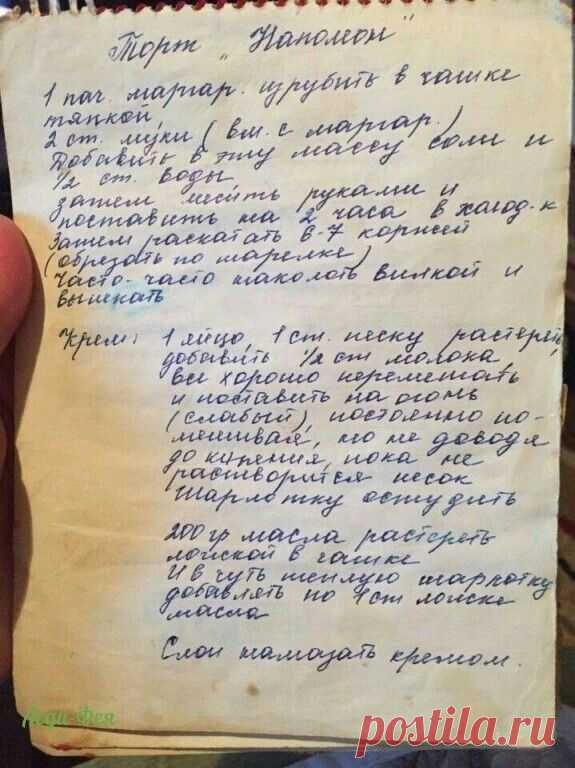 Торт „Наполеон"
1 пач. маргар. изрубить в чашке
тяпкой,
2 ст. муки (вм. с маргар.)
Добавить в эту массу соли и
1/2 ст. воды
Затем месить руками и
поставить на 2 часа в холод-к
Затем раскатать 6-7 коржей
(обрезать по тарелке)
Часто-часто наколоть вилкой и
выпекать
Крем: 1 яйцо, 1 ст. песку растереть,
добавить 1/2 ст молока,
все хорошо перемешать
и поставить на огонь
(слабый), постоянно по-
мешивая, но не доводя
до кипения, пока не
растворится песок
Шарлотку остудить
200 гр масла растереть
ложкой в чашке
И в чуть теплую шарлотку
добавлять по 1 ст ложке
масла
Слои намазать кремом.
Леди-Фея
postila.ru